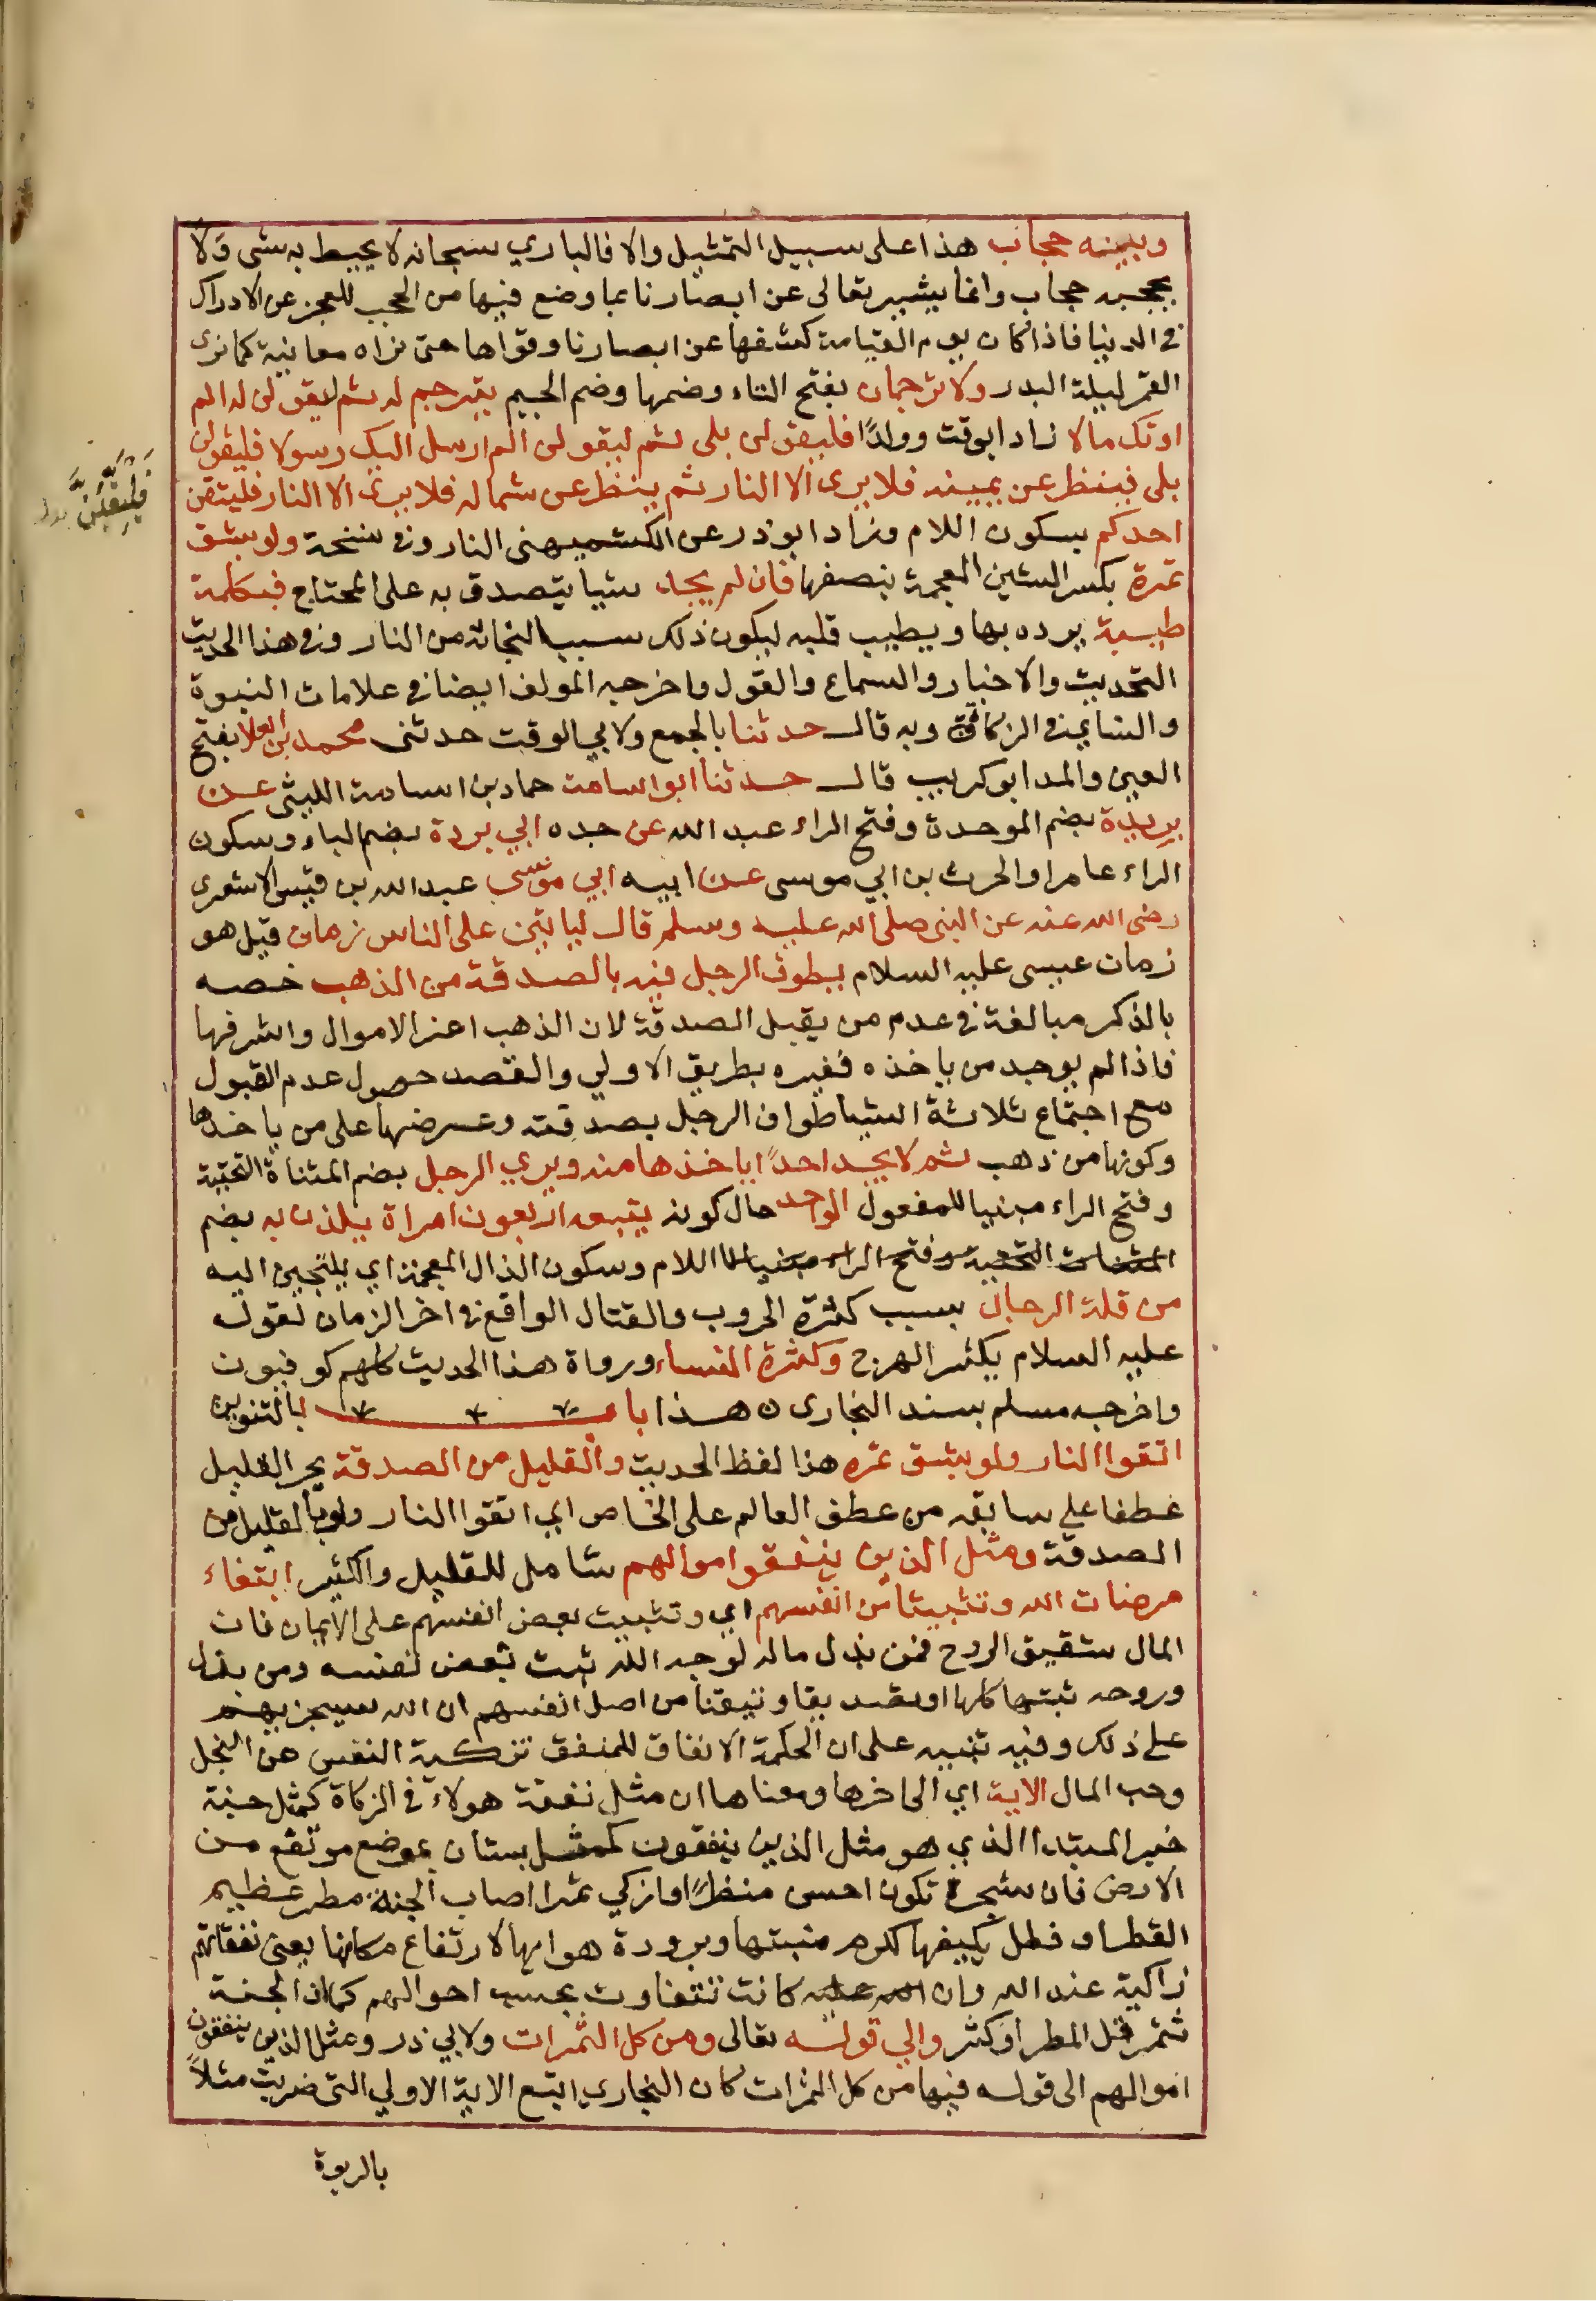 وبينه حجاب هذا على سبيل التمثيل والا فالباري سبحانه لا يحيط به شى ولا
يحجبه حجاب وانما يستتر تعالى عن ابصارنا بما وضع فيها من الحجب للعجز عن الادراك
في الدنيا فاذا كان يوم القيامة كشفها عن ابصارنا وقواها حتى نراه معاينة كما نرى
القمر ليلة البدر ولا ترجمان بفتح التاء وضمها وضم الجيم يترجم له ثم ليقولن له الم
اوتك مالا زاد ابو الوقت وولدًا فليقولن بلى ثم ليقولن الم ارسل اليك رسولا فليقولن
بلى فينظر عن يمينه فلا يرى الا النار ثم ينظر عن شماله فلا يرى الا النار فليتقين
احدكم بسكون اللام وزاد ابوذر عن الكشميهنى النار وفى نسخة ولو بشق
تمرة بكسر الشين المعجمة بنصفها فان لم يجد شيا يتصدق به على المحتاج فبكلمة
طيبة يرده بها ويطيب قلبه ليكون ذلك سببا لنجاته من النار وفى هذا الحديث
التحديث والاخبار والسماع والقول واخرجه المولف ايضا في علامات النبوة
والنسايى في الزكاة وبه قال حدثنا بالجمع ولابي الوقت حدثنى محمد بن العلا بفتح
العين والمد ابو كريب قال حدثنا ابو اسامة حماد بن اسامة الليثى عن
بريدة بضم الموحدة وفتح الراء عبد الله عن جده ابي بردة بضم الباء وسكون
الراء عامر او الحرث بن ابي موسى عن ابيه ابي موسى عبد الله بن قيس الاشعرى
رضى الله عنه عن النبى صلى الله عليه وسلم قال لياتين على الناس زمان قيل هو
زمان عيسى عليه السلام يطوف الرجل فيه بالصدقة من الذهب خصه
بالذكر مبالغة في عدم من يقبل الصدقة لان الذهب اعز الاموال واشرفها
فاذا لم يوجد من ياخذه فغيره بطريق الاولي والقصد حصول عدم القبول
مع اجتماع ثلاثة اشياء طواف الرجل بصدقته وعرضها على من ياخذها
وكونها من ذهب ثم لا يجد احدًا ياخذها منه ويري الرجل بضم المثناة التحتية
وفتح الراء مبنيا للمفعول الواحد حال كونه يتبعه اربعون امراة يلذن به بضم
المثنات التحتية وفتح الراء مبنيا لا اللام وسكون الذال المعجمة اي يلتجين اليه
من قلة الرجال بسبب كثرة الحروب والقتال الواقع في اخر الزمان لقوله
عليه السلام يكثر الهرج وكثرة النساء ورواة هذا الحديث كلهم كوفيون
واخرجه مسلم بسند البخارى ه هذا باب بالتنوين
اتقوا النار ولو بشق تمره هذا لفظ الحديث والقليل من الصدقة بجر القليل
عطفا على سابقه من عطف العام على الخاص اي اتقوا النار ولو بالقليل من
الصدقة ومثل الذين ينفقو اموالهم شامل للقليل والكثير ابتغاء
مرضات الله وتثبيتا من انفسهم اي وتثبيت بعض انفسهم على الايمان فان
المال شقيق الروح فمن بذل ماله لوجه الله ثبت بعض نفسه ومن بذل
وروحه ثبتها كلها او تصديقا وتيقنا من اصل انفسهم ان الله سيجزيهم
على ذلك وفيه تنبيه على ان الحكمة الانفاق للمنفق تزكية النفس من البخل
وحب المال الاية اي الى اخرها ومعناها ان مثل نفقة هولاء في الزكاة كمثل جنة
خبر المبتدا الذي هو مثل الذين ينفقون كمثل بستان بموضع مرتفع من
الارض فان شجره تكون احسن منظرًا وازكي ثمرا اصاب الجنة مطر عظيم
القطر او فطل يكيفها لكرم منبتها وبرودة هوايها لارتفاع مكانها يعنى نفقاتهم
زاكية عند الله وان كانت تتفاوت بحسب احوالهم كما ان الجنة
تثمر قل المطر او كثر والي قوله تعالى ومن كل الثمرات ولابي ذر ومثل الذين ينفقون
اموالهم الى قوله فيها من كل الثمرات كان البخاري اتبع الاية الاولي التى ضربت مثلًا
بالربوة